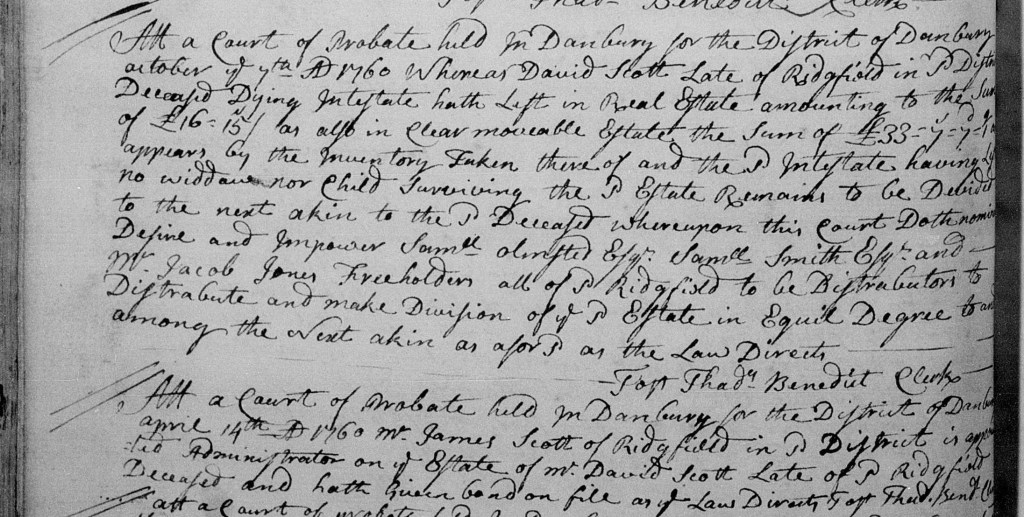 Test Thad. Benedict Clerk
Att a Court of Probate held In Danbury for the District of Danbury
october ye 7th AD 1760 Whereas David Scott Late of Ridgfield in sd Distr
Deceased Dying Intestate hath Left in Real Estate amounting to the Sum
of £16=15/ as also in Clear moveable Estate the Sum of £33=
appears by the Inventory Taken there of and the sd Intestate having
no widdaw nor Child Surviving the sd Estate Remains to be Devided
to the next akin to the sd Deceased whereupon this Court Doth nomin
Desire and Impower Samll olmsted Esqr. Samll Smith Esqr. and
mr. Jacob Jones Freeholders all of sd Ridgfield to be Distrabutors to
Distrabute and make Division of ye sd Estate in Equil Degree to an
among the Next akin as afor sd as the Law Directs
Test Thadr. Benedict Clerk
Att a Court of Probate held In Danbury for the District of Danbu
april 14th AD 1760 mr. James Scott of Ridgfield in sd District is appoin
=ted Administrator on ye Estate of mr. David Scott Late of sd Ridgfield
Deceased and hath Given bond on file as ye Law Directs Test Thad. Bend. Cl
att a Court of probate